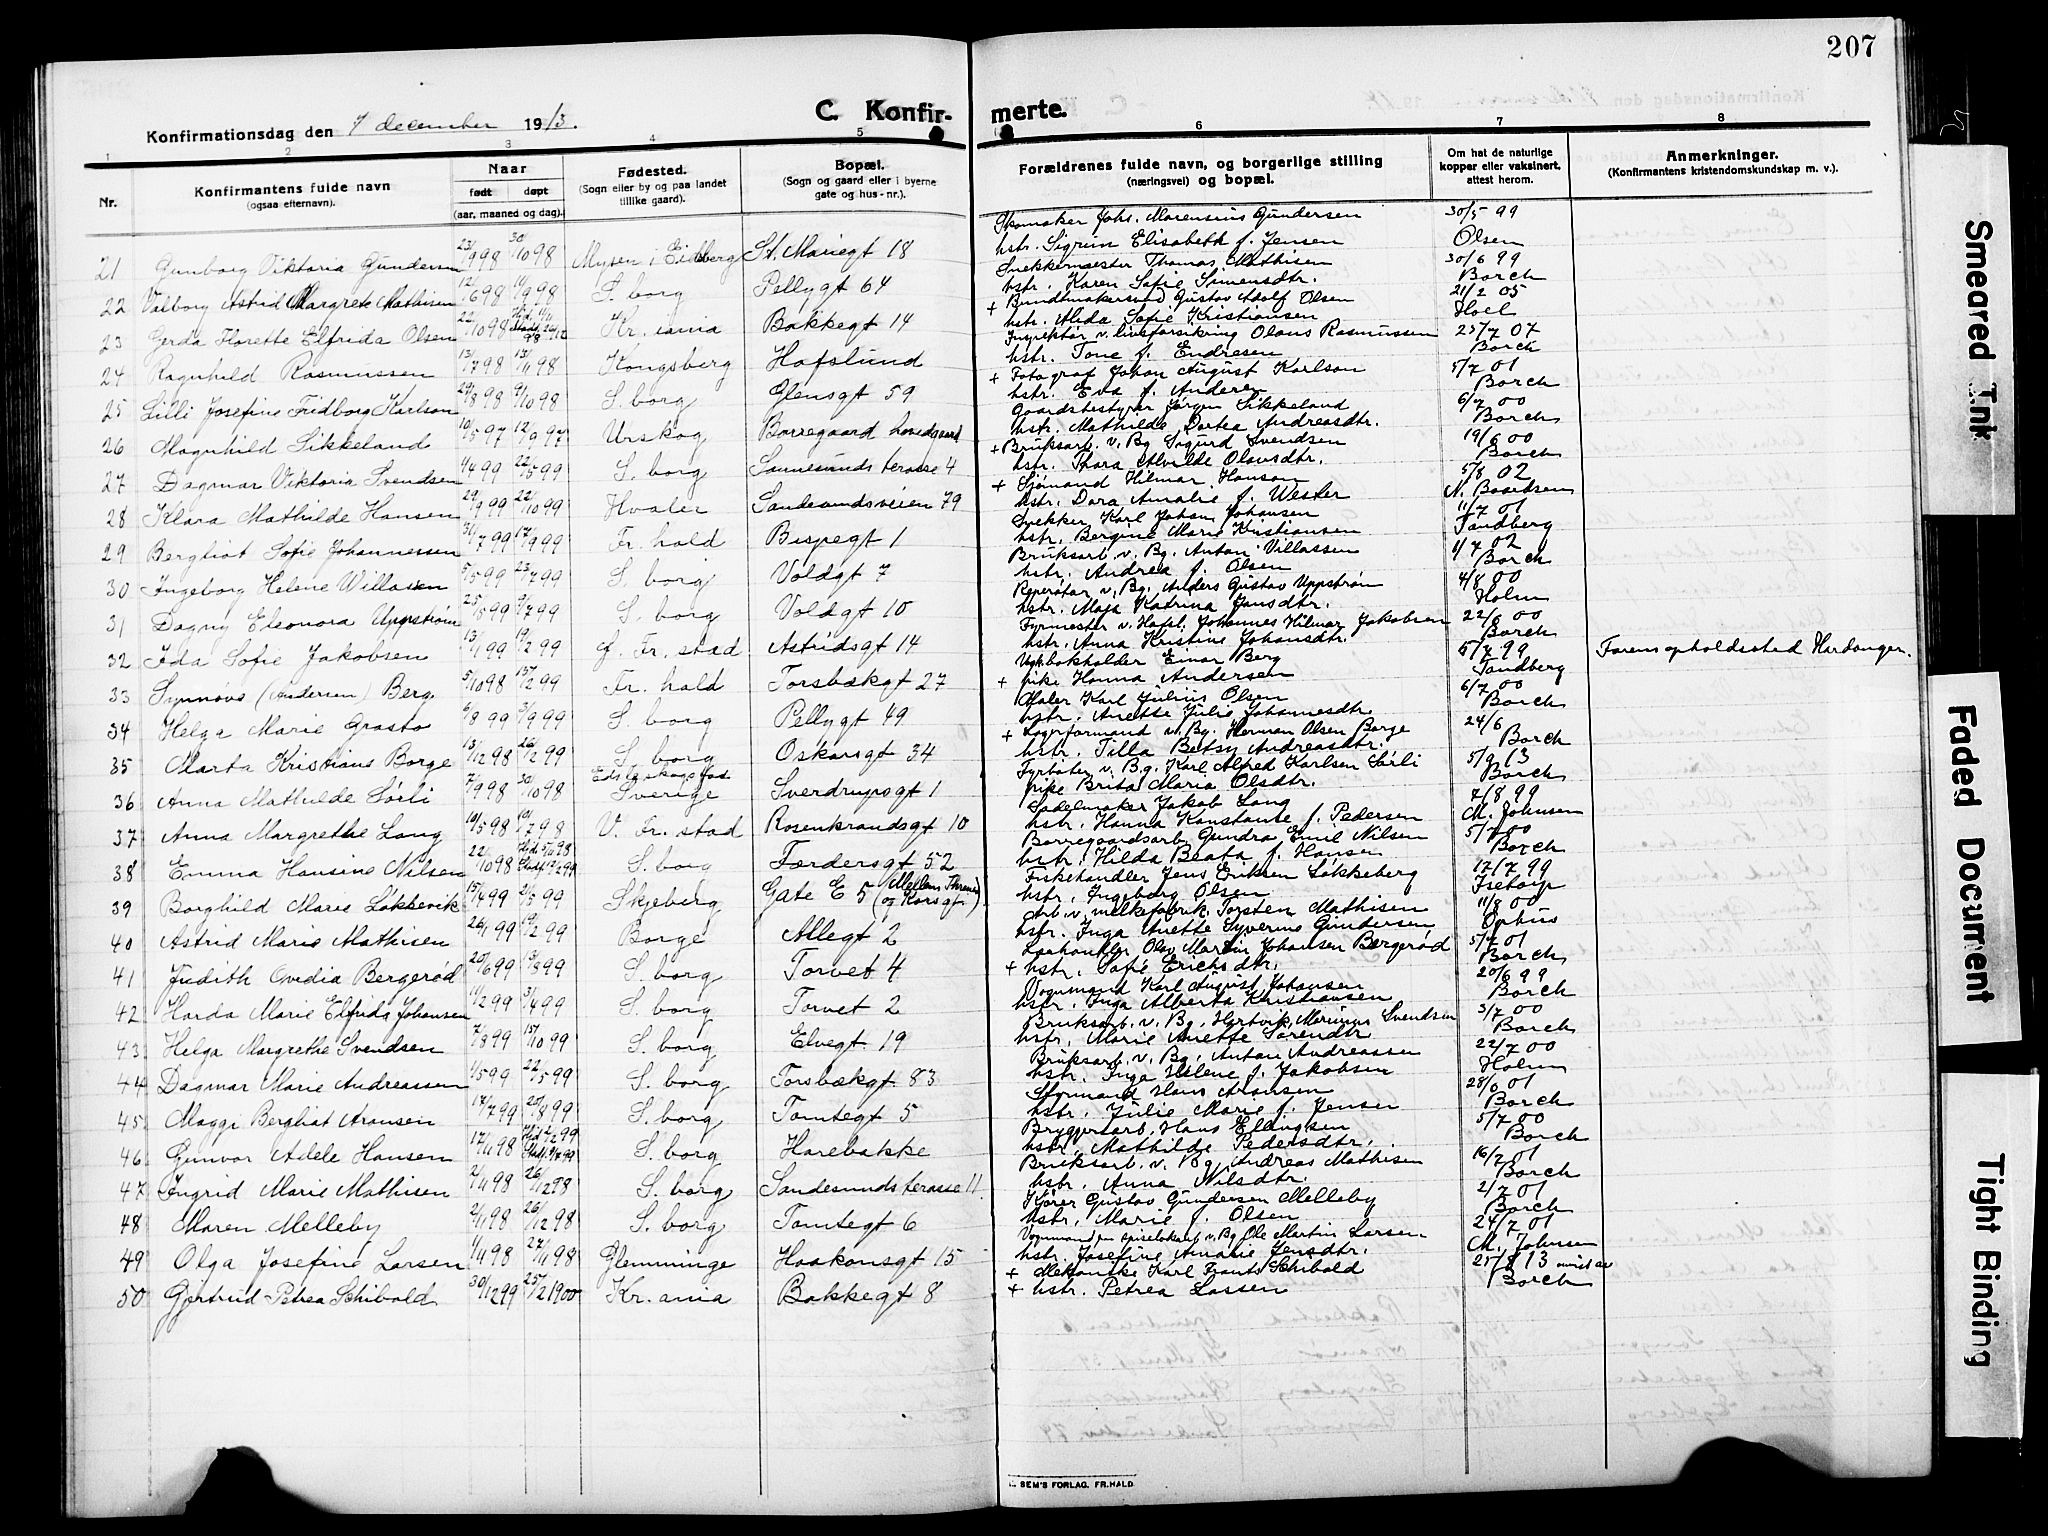 207
C. Konfir-merte.
Konfirmationsdag den 7 december 1913.
1 2 3 4 5 6 7 8
Nr.
Konfirmantens fulde navn
(ogsaa efternavn).
Naar
født døpt
(aar, maaned og dag).
Fødested.
(Sogn eller by og paa landet
tillike gaard).
Bopæl.
(Sogn og gaard eller i byerne
gate og hus-nr.).
Forældrenes fulde navn, og borgerlige stilling
(næringsvei) og bopæl.
Om hat de naturlige
kopper eller vaksinert,
attest herom.
Anmerkninger.
(Konfirmantens kristendomskundskap m. v.).
21 Gunborg Viktoria Gundersen 23/9 98 30/10 98 Mysen i Eidsberg St. Mariegt 18
Skomaker Johs. Marensius Gundersen 30/5 99
hstr. Sigrun Elisabeth f. Jensen Olsen
22 Valborg Astrid Margrete Mathisen 12/6 98 11/9 98 S. borg Pellygt 64
Snekkermester Thomas Mathisen 30/6 99
hstr. Karen Sofie Simensdtr. Borch
23 Gerda Florette Elfrida Olsen 22/10 98 Kr. ania Bakkegt 14
+ Bundtmakersvend Gustav Adolf Olsen 21/2 05
hstr. Alida Sofie Kristiansen Hoel
24 Ragnhild Rasmussen 13/7 98 13/11 98 Kongsberg Hafslund
Inspektør v. livsforsikring Olaus Rasmussen 25/7 07
hstr. Tone f. Endresen Borch
25 Lilli Josefine Fridborg Karlson 29/8 98 9/10 98 S. borg Glengsgt 59
+ Fotograf Johan August Karlson 5/7 01
hstr. Eva f. Andersen Borch
26 Magnhild Sikkeland 10/5 97 12/9 97 Urskog Borregaard hovedgaard
Gaardsbestyrer Jørgen Sikkeland 6/7 00
hstr. Mathilde Dortea Andreasdtr. Borch
27 Dagmar Viktoria Svendsen 4/4 99 22/5 99 S. borg Sannesunds terasse 4
+ Bruksarb. v. Bg Sigurd Svendsen 19/6 00
hstr. Thora Alvilde Olausdtr. Borch
28 Klara Mathilde Hansen 29/9 99 22/10 99 Hvaler Sandesundsveien 79
+ Sjømand Hilmar Hanson 5/8 02
hstr. Dora Amalie f. Wester
29 Bergliot Sofie Johannessen 31/7 99 17/9 99 Fr. hald Bispegt 1
Snekker Karl Johan Johansen 11/7 01
hstr. Bergine Marie Kristiansen Tandberg
30 Ingeborg Helene Willassen 5/5 99 23/7 99 S. borg Voldgt 7
Bruksarb. v. Bg. Anton Villassen 1/7 02
hstr. Andrea f. Olsen Borch
31 Dagny Eleonora Uppstrøm 25/5 99 9/7 99 S. borg Voldgt 10
Reperatør v. Bg. Anders Gustav Uppstrøm 4/8 00
hstr. Maja Katrina Jansdtr. Holm
32 Ida Sofie Jakobsen 13/1 99 19/2 99 g. Fr. stad Astridsgt 14
Fyrmester v. Hafsl. Johannes Hilmar Jakobsen 22/6 00
hstr. Anna Kristine Johansdtr. Borch
33 Synnøve (Andersen) Berg 5/10 98 15/2 99 Fr. hald Torsbækgt 27
Ugk. bokholder Einar Berg 5/7 99 Farens opholdssted Hardanger.
+ pike Hanna Andersen Tandberg
34 Helga Marie Grasto 6/8 99 3/9 99 S. borg Pellygt 49
Maler Karl Julius Olsen 6/7 00
hstr. Anette Julie Johannesdtr. Borch
35 Marta Kristiane Borge 13/12 98 26/2 99 S. borg Oskarsgt 34
+ Lagerformand v. Bg. Herman Olsen Borge 24/6
hstr. Tilla Betsy Andreasdtr. Borch
36 Anna Mathilde Sørli 7/9 98 30/10 98 Sverige Sverdrupsgt 1
Fyrbøter v. B.g. Karl Alfred Karlsen Sørli 5/9 13
pike Brita Maria Olsdtr. Borch
37 Anna Margrethe Lang 10/5 98 10/7 98 V. Fr. stad Rosenkrandsgt 10
Sadelmaker Jakob Lang 7/8 99
hstr. Hanna Konstanse f. Pedersen M. Johnsen
38 Emma Hansine Nilsen 22/10 98 S. borg Færdersgt 52
Borregaardsarb. Gundro Emil Nilsen 5/7 00
hstr. Hilda Beata f. Hansen Borch
39 Borghild Marie Løkkevik 15/4 99 21/5 99 Skjeberg Gate E 5 (Mellem Thrane og Korsgt.)
Fiskehandler Jens Eriksen Løkkeberg 17/7 99
hstr. Ingeborg Olsen
40 Astrid Marie Mathisen 26/1 99 19/2 99 Borge Allegt 2
Arb. v. melkefabrik. Torsten Mathisen 11/8 00
hstr. Inga Anette Syverine Gundersen Ophus
41 Judith Ovidia Bergerød 20/6 99 13/8 99 S. borg Torvet 4
Olav Martin Johansen Bergerød 5/7 01
+ hstr. Sofie Erichsdtr. Borch
42 Harda Marie Elfrida Johansen 11/2 99 3/4 99 S. borg Torvet 2
Vognmand Karl August Johansen 20/6 99
hstr. Inga Alberta Kristiansen Borch
43 Helga Margrethe Svendsen 7/8 99 15/10 99 S. borg Elvegt 19
Bruksarb. v. Bg. Hartvik Marinius Svendsen 3/7 00
hstr. Marie Anette Sørendtr Borch
44 Dagmar Marie Andreassen 1/5 99 22/5 99 S. borg Torsbækgt 83
Bruksarb. v. Bg. Anton Andreassen 22/7 00
hstr. Inga Helene f. Jakobsen Holm
45 Maggi Bergliot Aronsen 17/7 99 20/8 99 S. borg Tomtegt 5
Styrmand Hans Aronsen 28/6 01
hstr. Julie Marie f. Jensen Borch
46 Gunvor Adele Hansen 17/11 98 S. borg Harebakke
Bryggeriarb. Hans Ellingsen 5/7 00
hstr. Mathilde Pedersdtr. Borch
47 Ingrid Marie Mathisen 2/11 98 26/12 98 S. borg Sandesunds terasse 11.
Bruksarb. v. Bg Andreas Mathisen 16/7 01
hstr. Anna Nilsdtr. Borch
48 Maren Melleby 2/11 98 26/12 98 S. borg Tomtegt 6
Kjører Gustav Gundersen Melleby 2/7 01
hstr. Marie f. Olsen Borch
49 Olga Josefine Larsen 1/11 98 27/11 98 Glemminge Haakonsgt 15
Vognmand v. Bg Ole Martin Larsen 24/7 01
hstr. Josefine Amalie Jensdtr. M. Johnsen
50 Gjertrud Petrea Schibald 30/12 99 25/2 1900 Kr. ania Bakkegt 8
+ Mekaniske Karl Frants Schibald 25/8 13
+ hstr. Petrea Lassen Borch
SEM'S FORLAG. FR.HALD
Smeared Ink
Faded Document
Tight Binding